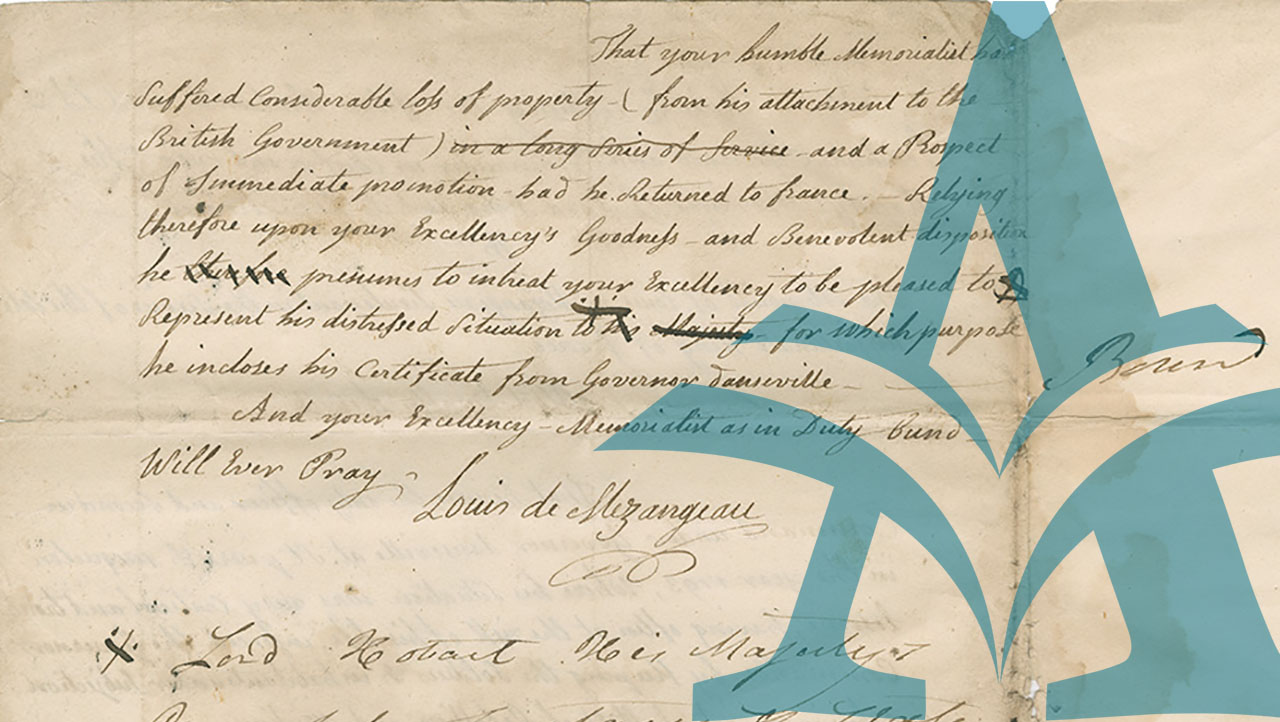 That your humble Memorialist has
Suffered Considerable loss of property – ( from his attachment to the
British Government ) in a long Series of Service and a Prospect
of Immediate promotion had he Returned to france. – Relying
therefore upon your Excellency's Goodness – and Benevolent disposition
he presumes to intreat your Excellency to be pleased to
Represent his distressed Situation to his Majesty – for which purpose
he incloses his Certificate from Governor Danseville –
And your Excellency – Memorialist as in Duty bund
Will Ever Pray
Louis de Mezangeau
X Lord Hobart His Majesty's